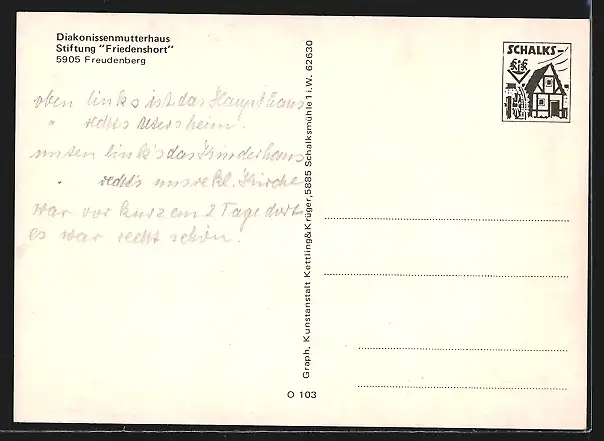 Diakonissenmutterhaus
Stiftung "Friedenshort"
5905 Freudenberg
oben links ist das Haupthaus
" rechts Altersheim.
unten link's das Kinderhaus
" rechts unsre kl. Kirche
war vor kurzem 2 Tage dort
es war recht schön.
Graph. Kunstanstalt Kettling & Krüger, 5885 Schalksmühle 1 i.W. 62630
O 103
SCHALKS-
KIK